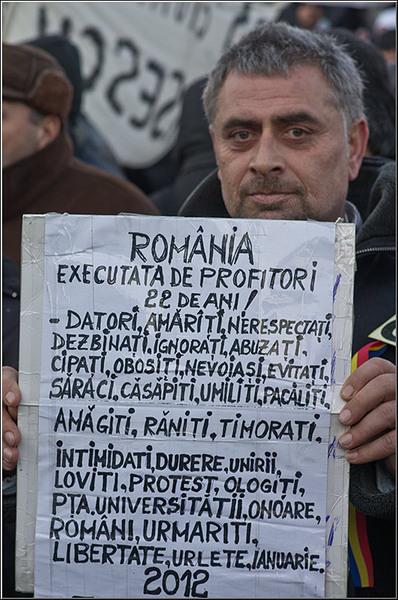 ROMÂNIA
EXECUTATA DE PROFITORI
22 DE ANI!
- DATORI, AMĂRÎTI, NERESPECTAȚI,
DEZBINAȚI, IGNORAȚI, ABUZAȚI.
CIPATI, OBOSIȚI, NEVOIAȘI, EVITAȚI
SĂRACI, CĂSĂPIȚI, UMILIȚI, PĂCĂLIȚI
AMĂGIȚI, RĂNIȚI, TIMORAȚI,
ÎNTIMIDATI, DURERE, UNIRII,
LOVIȚI, PROTEST, OLOGIȚI,
PTA. UNIVERSITĂȚII, ONOARE,
ROMÂNI, URMARIȚI,
LIBERTATE, URLETE, IANUARIE.
2012